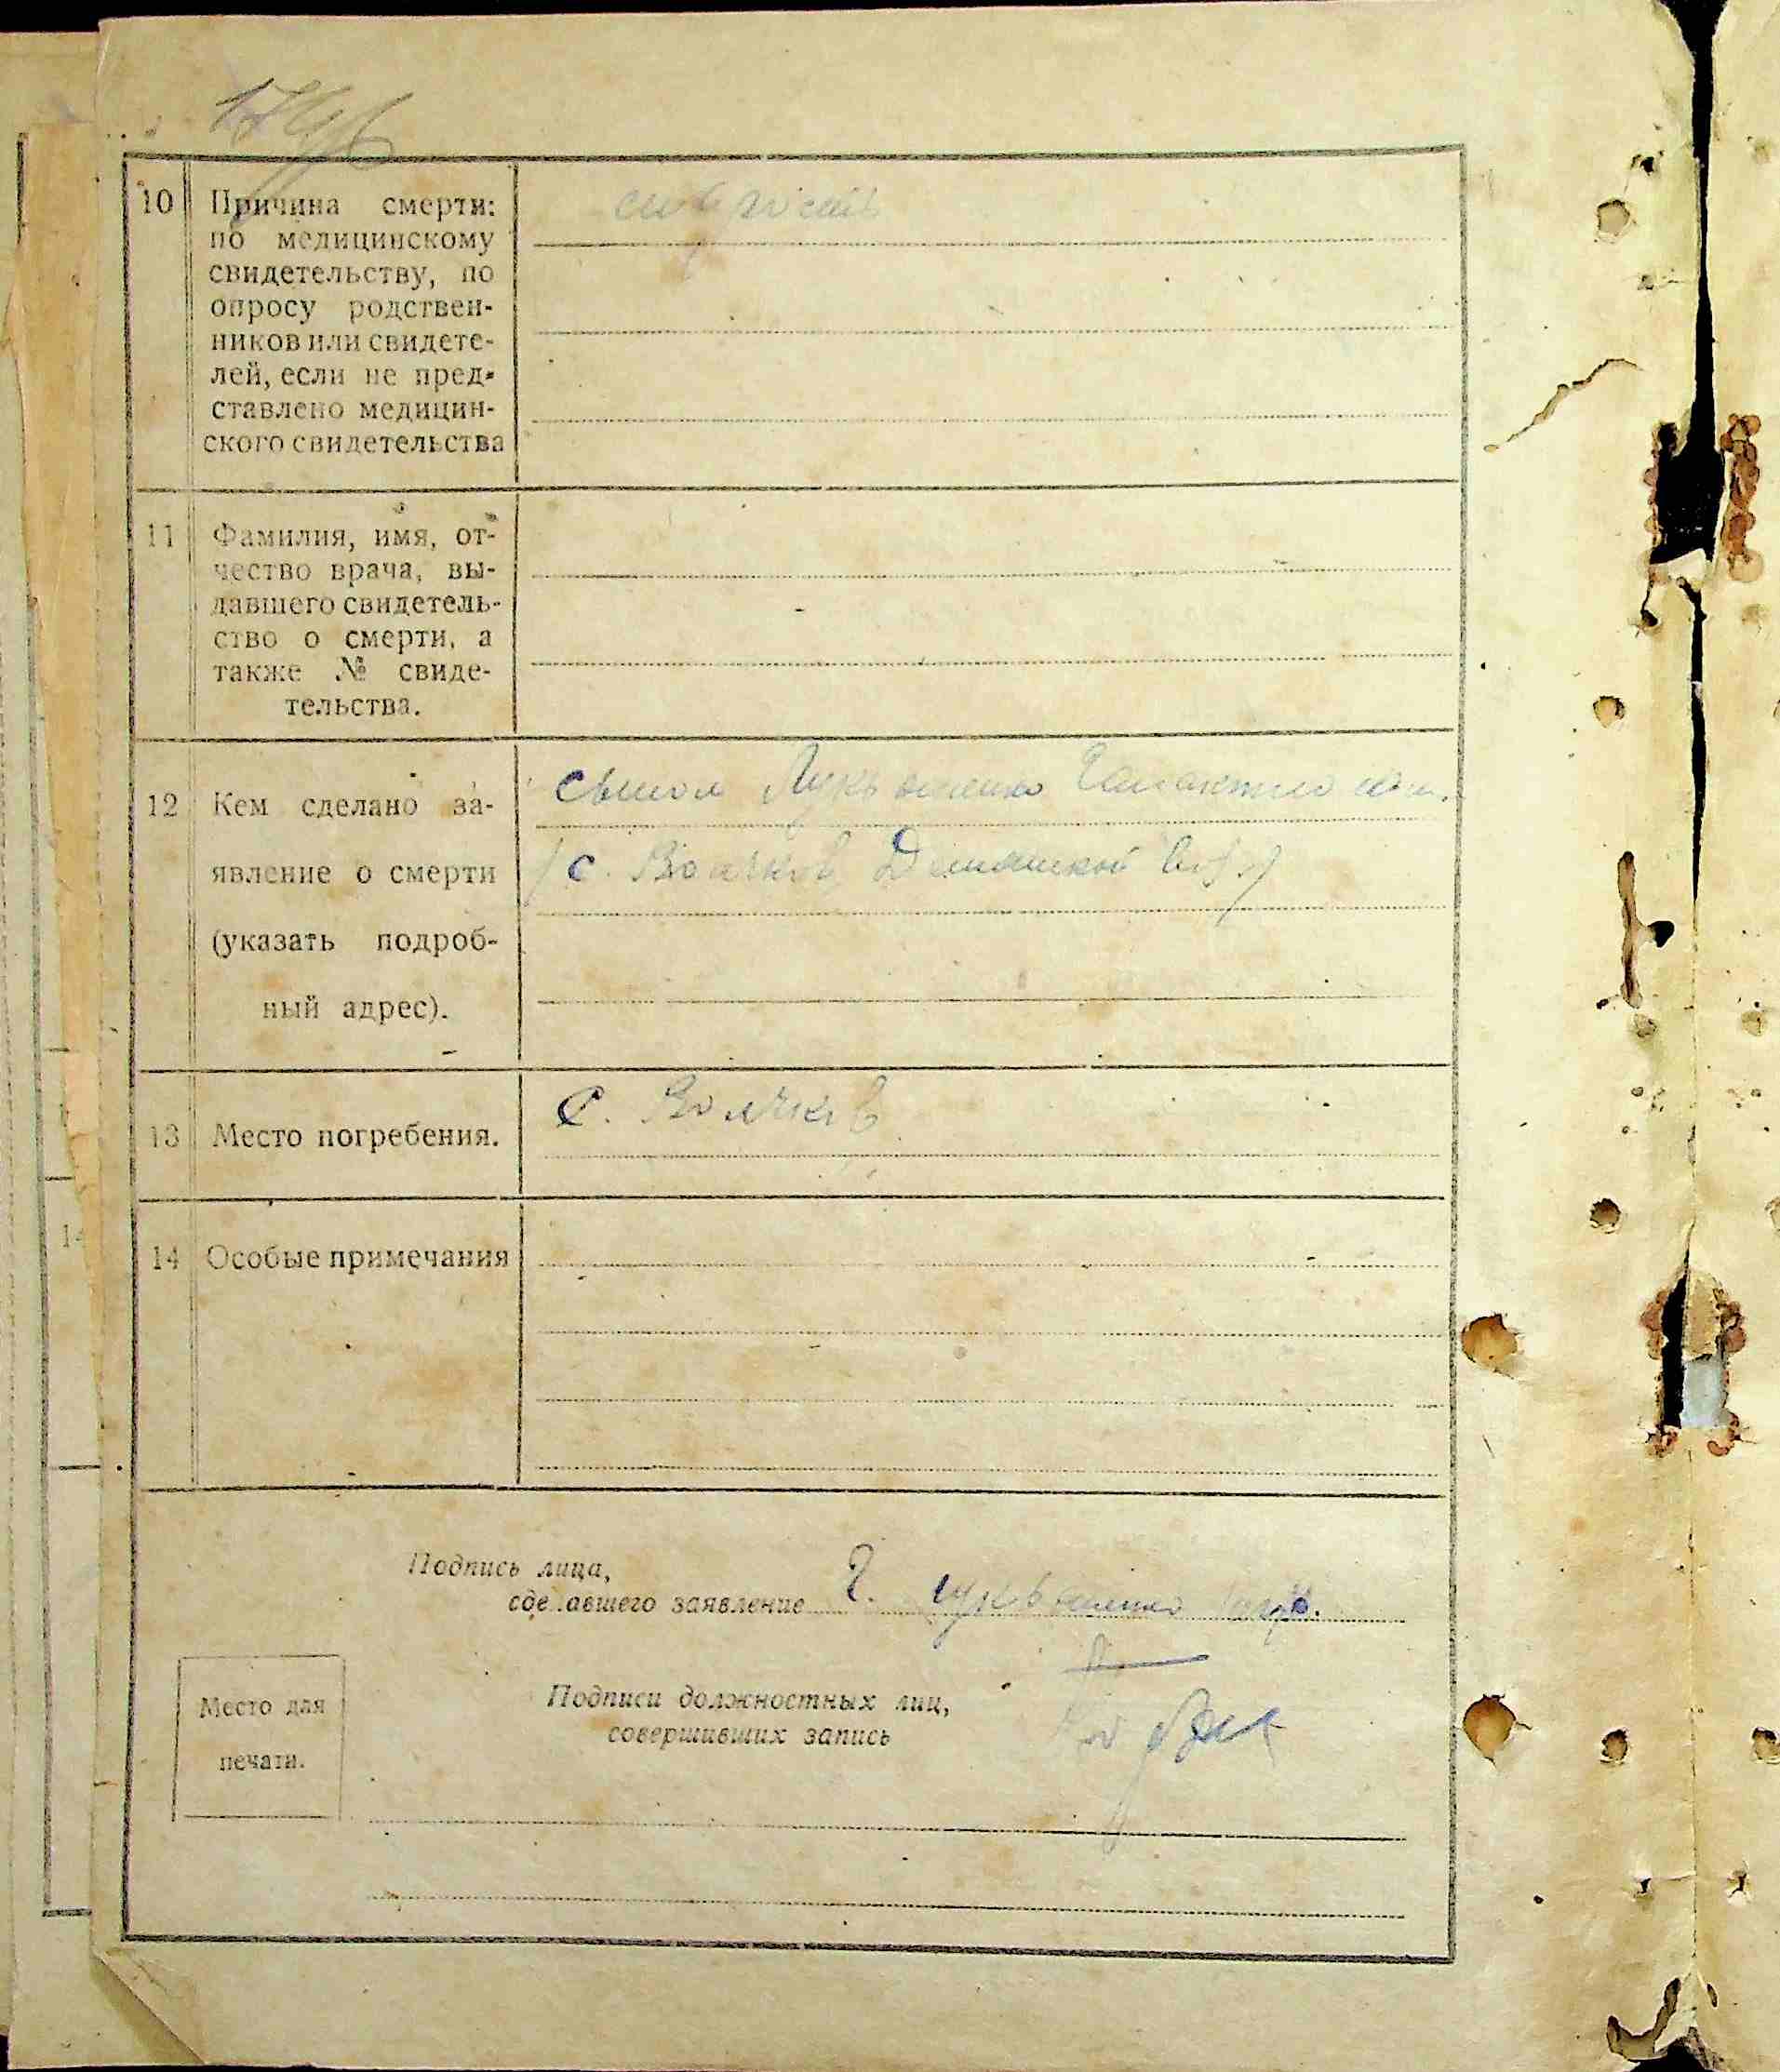 10 Причина смерти:
по медицинскому
свидетельству, по
опросу родствен-
ников или свидете-
лей, если не пред-
ставлено медицин-
ского свидетельства
11 Фамилия, имя, от-
чество врача, вы-
давшего свидетель-
ство о смерти, а
также № свиде-
тельства.
12 Кем сделано за-
явление о смерти
(указать подроб-
ный адрес).
сыном Лукьяненко
с.
13 Место погребения.
с.
14 Особые примечания
14
Подпись лица,
сделавшего заявление
Подписи должностных лиц,
совершивших запись
Место для
печати.